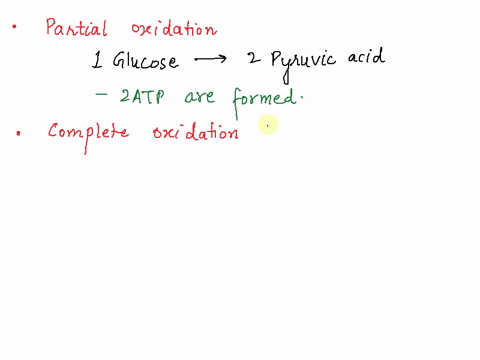 • Partial oxidation
1 Glucose → 2 Pyruvic acid
- 2ATP are formed.
• Complete oxidation